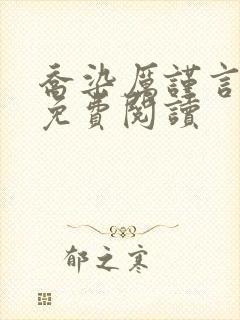 喬染厲謹言
免費閱讀
郁之寒